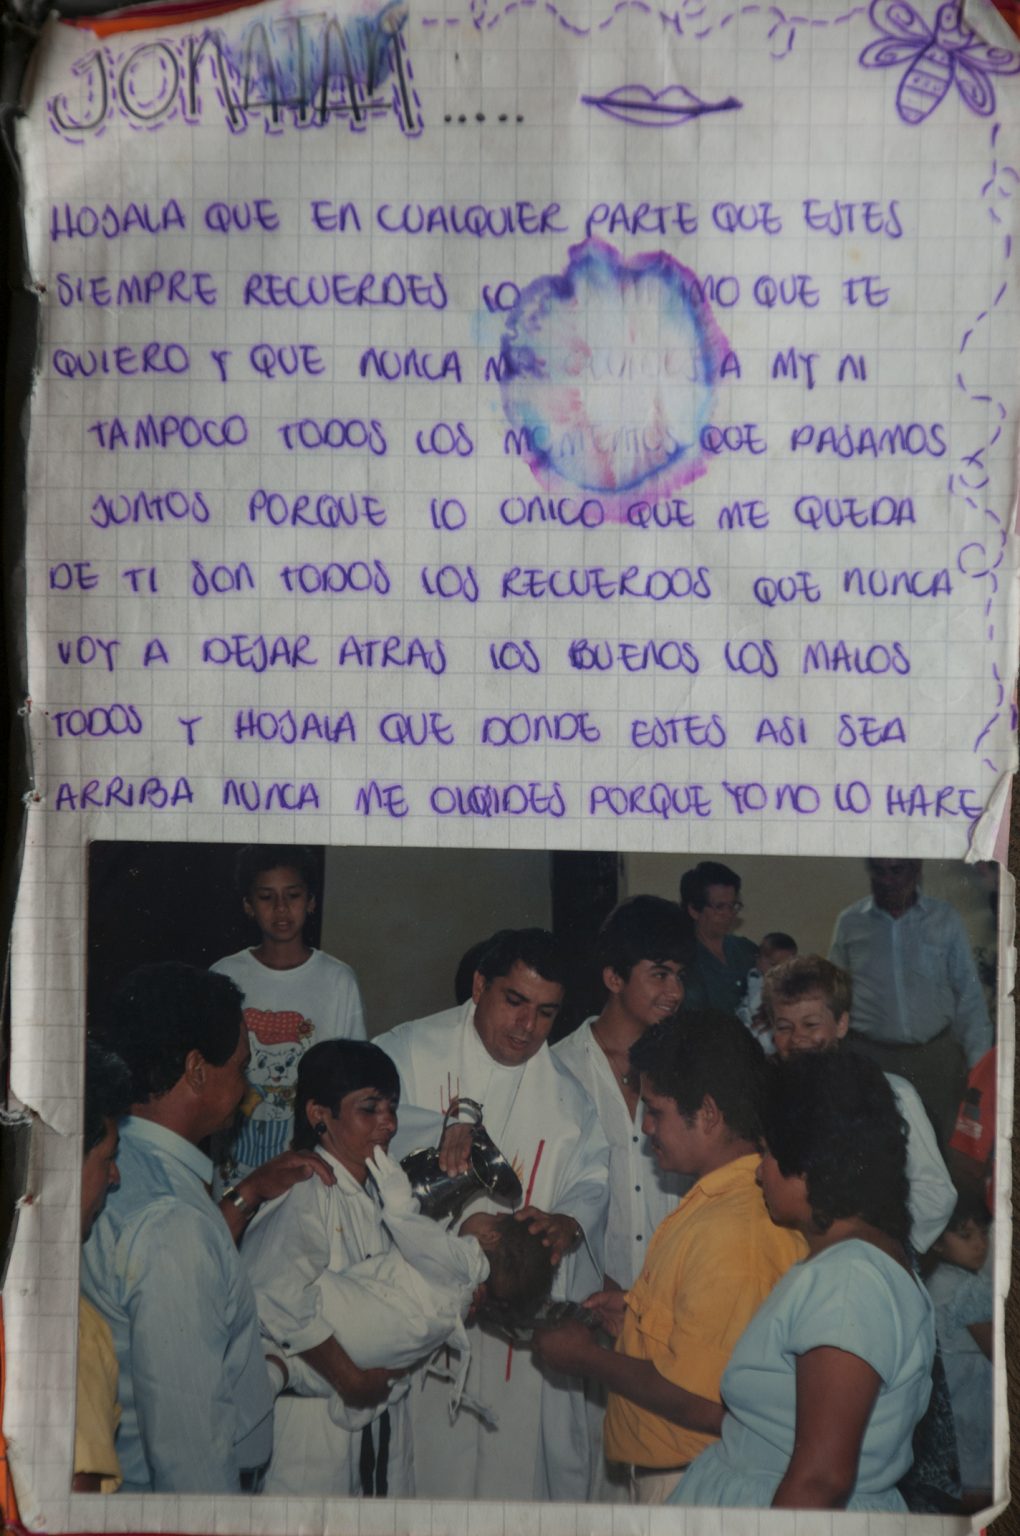 JONATAN.....
HOJALA QUE EN CUALQUIER PARTE QUE ESTES
SIEMPRE RECUERDES LO MO QUE TE
QUIERO Y QUE NUNCA A MY NI
TAMPOCO TODOS LOS MOMENTOS QUE PASAMOS
JUNTOS PORQUE LO UNICO QUE ME QUEDA
DE TI SON TODOS LOS RECUERDOS QUE NUNCA
VOY A DEJAR ATRAS LOS BUENOS LOS MALOS
TODOS Y HOJALA QUE DONDE ESTES ASI SEA
ARRIBA NUNCA ME OLVIDES PORQUE YO NO LO HARE